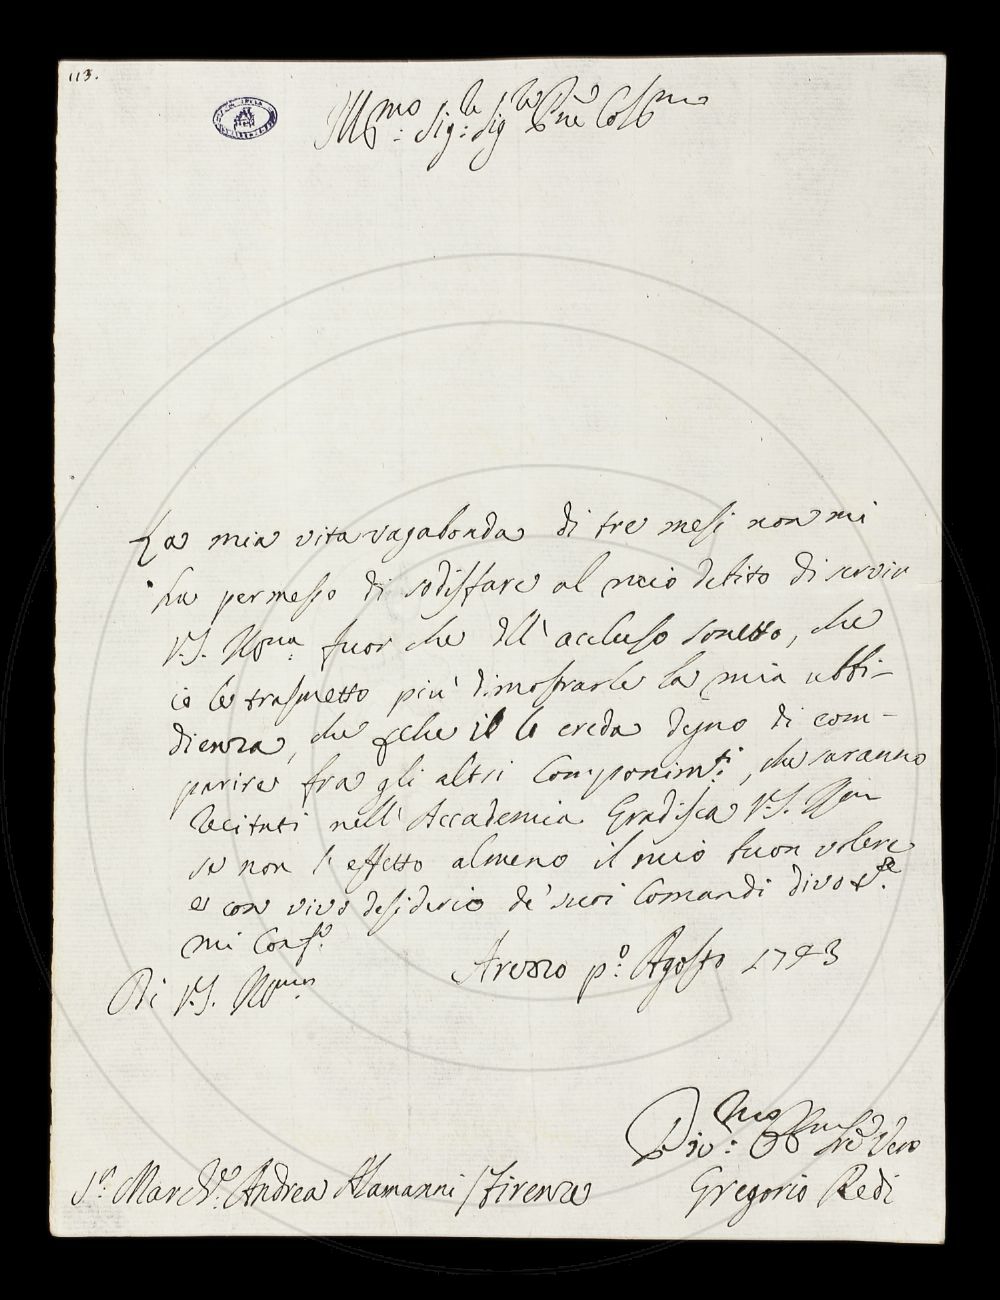 113.
Ill:mo Sig:re Sig:re Pne Colmo
La mia vita vagabonda di tre mesi non mi
ha permesso di sodisfare al mio debito di servir
V.S. Illma fuor che dll' accluso sonetto, che
io le trasmetto più dimostrarle la mia ubbi-
dienza, che pche il lo creda degno di com-
parire fra gli altri componim:ti, che saranno
recitati nell' Accademia Gradisca V.S. Illma
se non l' effetto almeno il mio buon volere
e con vivo desiderio de' suoi comandi divot:te
mi Conf:o
Di V.S. Illma Arezzo p:o Agosto 1743
Div:mo Obbmo Sre Vero
S.r March:e Andrea Alamanni / Firenze Gregorio Redi